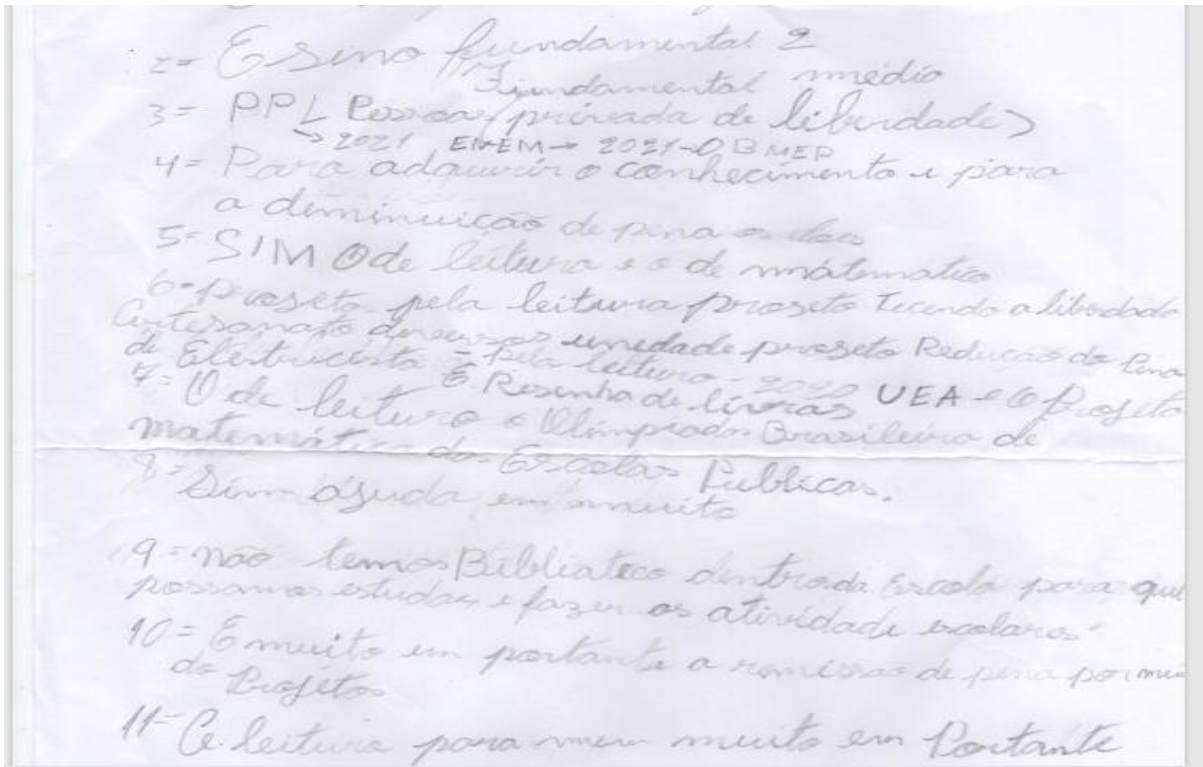 2= Esino fundamental 2
Fundamental médio
3= PPL Pessoas privada de liberdade>
→ 2021 ENEM→ 2021-OBMEP
4= Para adquirir o conhecimento e para
a diminuição de pena
5= SIM O de leitura e o de matematica
6= projeto pela leitura projeto Tecendo a liberdade
Artesanato unidade projeto Redução da Pena
de Eletricista = pela leitura - 2020 UEA e o Projeto
7= O de leitura É Resenha de livros
e Olimpiadas Brasileira de
matemática das Escolas Publicas.
8= Sim ajuda em muito
9= não temos Biblioteca dentro da Escola para que
possamos estudar e fazer as atividade escolares
10= E muito em portante a remissão de pena por
do Projetos
11= A leitura para mim muito em Portante